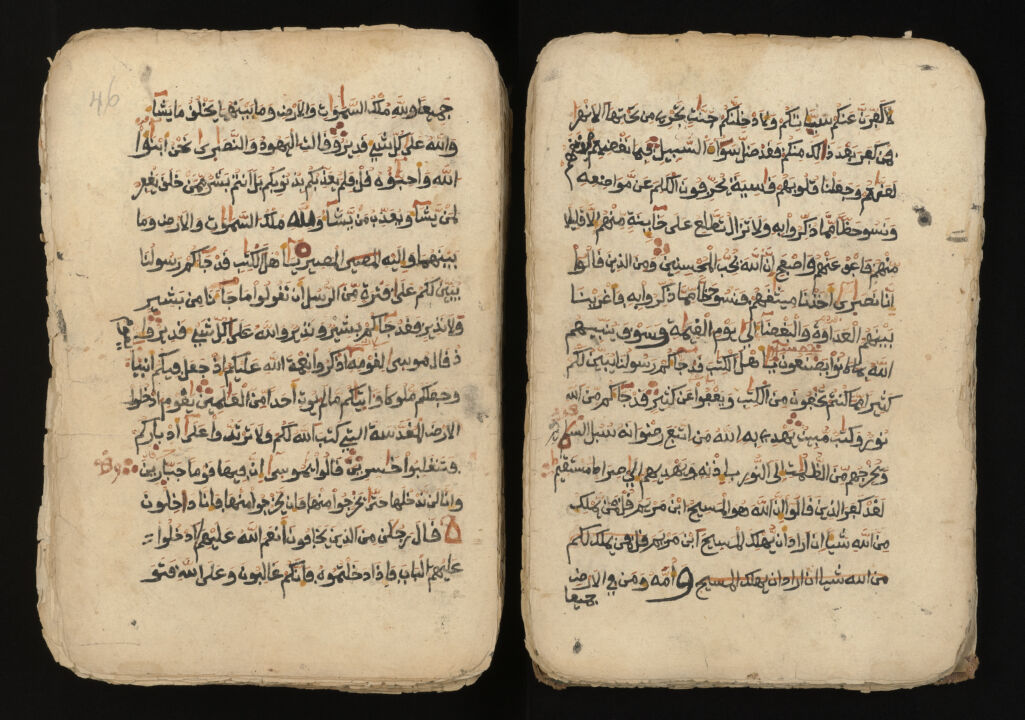 لاكفرن عنكم سياتكم ولادخلنكم جنت تجري من تحتها الانهر
فمن كفر بعد ذالك منكم فقد ضل سواء السبيل فبما نقضهم ميثقهم
لعنهم وجعلنا قلوبهم قاسية يحرفون الكلم عن مواضعه
ونسوا حظا مما ذكروا به ولا تزال تطلع على خاينة منهم الا قليلا
منهم فاعف عنهم واصفح ان الله يحب المحسنين ومن الذين قالوا
انا نصرى اخذنا ميثقهم فنسوا حظا مما ذكروا به فاغرينا
بينهم العداوة والبغضا الى يوم القيمة وسوف ينبيهم
الله بما كانوا يصنعون ياهل الكتب قد جاكم رسولنا يبين لكم
كثيرا مما كنتم تخفون من الكتب ويعفوا عن كثير قد جاكم من الله
نور وكتب مبين يهدي به الله من اتبع رضوانه سبل السلم
ويخرجهم من الظلمت الى النور باذنه ويهديهم الى صراط مستقيم
لقد كفر الذين قالوا ان الله هو المسيح ابن مريم قل فمن يملك
من الله شيا ان اراد ان يهلك المسيح ابن مريم قل فمن يملك لكم
من الله شيا ان اراد ان يهلك المسيح وامه ومن في الارض
جميعا
46
جميعا ولله ملك السموات والارض وما بينهما يخلق ما يشا
والله على كل شي قدير وقالت اليهود والنصرى نحن ابنوا
الله واحبوه قل فلم يعذبكم بذنوبكم بل انتم بشر ممن خلق يغفر
لمن يشا ويعذب من يشا ولله ملك السموات والارض وما
بينهما واليه المصير ياهل الكتب قد جاكم رسولنا
يبين لكم على فترة من الرسل ان تقولوا ما جانا من بشير
ولا نذير فقد جاكم بشير ونذير والله على كل شي قدير
واذ قال موسى لقومه اذكروا نعمة الله عليكم اذ جعل فيكم انبيا
وجعلكم ملوكا واتيكم ما لم يوت احدا من العلمين يقوم ادخلوا
الارض المقدسة التي كتب الله لكم ولا ترتدوا على ادباركم
فتنقلبوا خسرين قالوا يموسى ان فيها قوما جبارين
وانا لن ندخلها حتى يخرجوا منها فان يخرجوا منها فانا داخلون
قال رجلن من الذين يخافون انعم الله عليهم ادخلوا
عليهم الباب فاذا دخلتموه فانكم غالبون وعلى الله فتو